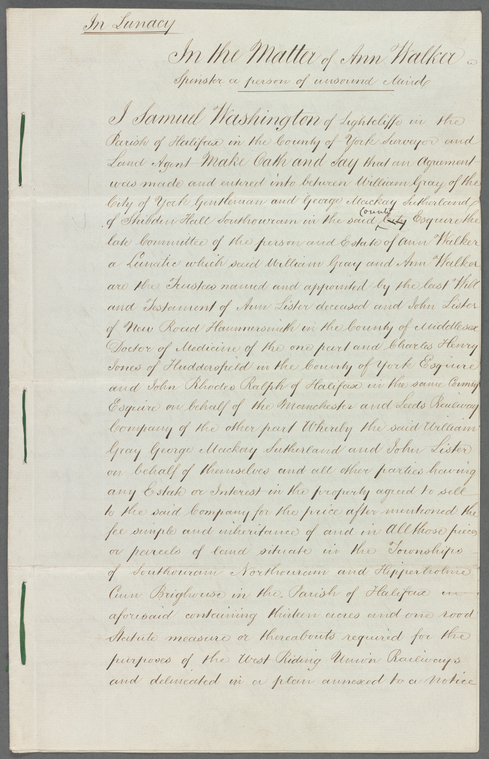 In Lunacy
In the Matter of Ann Walker
Spinster a person of unsound Mind
I Samuel Washington of Lightcliffe in the
Parish of Halifax in the County of York Surveyor and
Land Agent Make Oath and Say that an Agreement
was made and entered into between William Gray of the
City of York Gentleman and George Mackay Sutherland
of Shibden Hall Southowram in the said City County Esquire the
late Committee of the person and Estate of Ann Walker
a Lunatic which said William Gray and Ann Walker
are the Trustees named and appointed by the last Will
and Testament of Ann Lister deceased and John Lister
of New Road Hammersmith in the County of Middlesex
Doctor of Medicine of the one part and Charles Henry
Jones of Huddersfield in the County of York Esquire
and John Rhodes Ralph of Halifax in the same County
Esquire on behalf of the Manchester and Leeds Railway
Company of the other part Whereby the said William
Gray George Mackay Sutherland and John Lister
on behalf of themselves and all other parties having
any Estate or Interest in the property agreed to sell
to the said Company for the price after mentioned the
fee simple and inheritance of and in All those pieces
or parcels of land situate in the Townships
of Southowram Northowram and Hipperholme
Cum Brighouse in the Parish of Halifax
aforesaid containing thirteen acres and one rood
Statute measure or thereabouts required for the
purposes of the West Riding Union Railways
and delineated in a plan annexed to a Notice